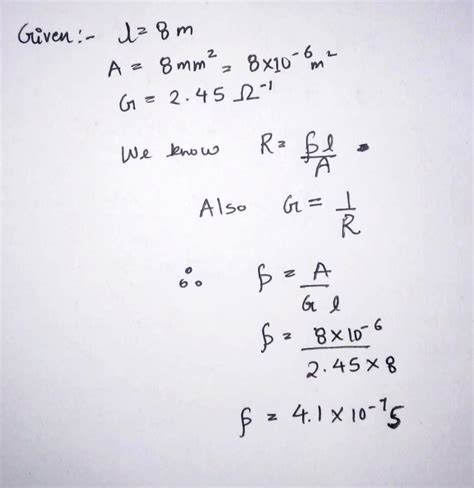 Given:- l = 8 m
A = 8mm² = 8×10⁻⁶ m²
G = 2.45 Ω⁻¹
We know R = ρl/A
Also G = 1/R
∴ ρ = A/G l
ρ = 8×10⁻⁶/2.45×8
ρ = 4.1×10⁻⁷5